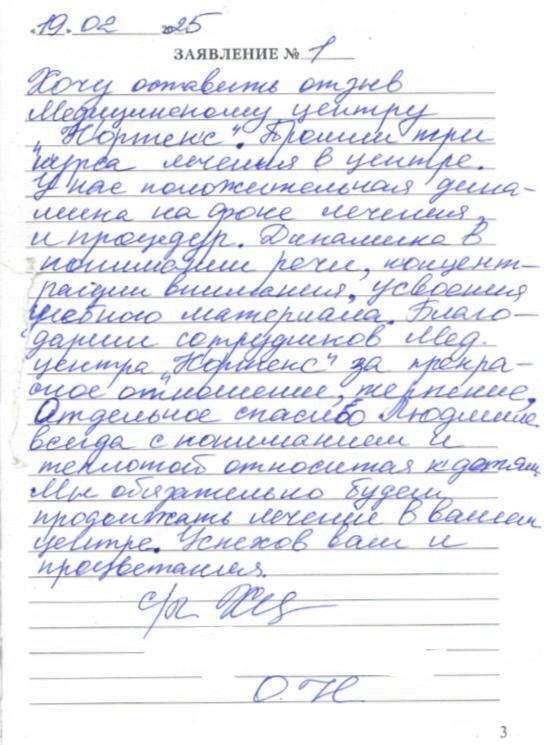 «19» 02 2025
ЗАЯВЛЕНИЕ № 1
Хочу оставить отзыв
Медицинскому центру
"Нортекс". Прошли три
курса лечения в центре.
У нас положительная дина-
мика на фоне лечения
и процедур. Динамика в
понимании речи, концент-
рации внимания, усвоения
учебного материала. Благо-
дарим сотрудников Мед.
центра "Нортекс" за прекра-
сное отношение, терпение.
Отдельное спасибо Людмиле
всегда с пониманием и
теплотой относится к детям
Мы обязательно будем
продолжать лечение в вашем
центре. Успехов вам и
процветания.
О. Н
3